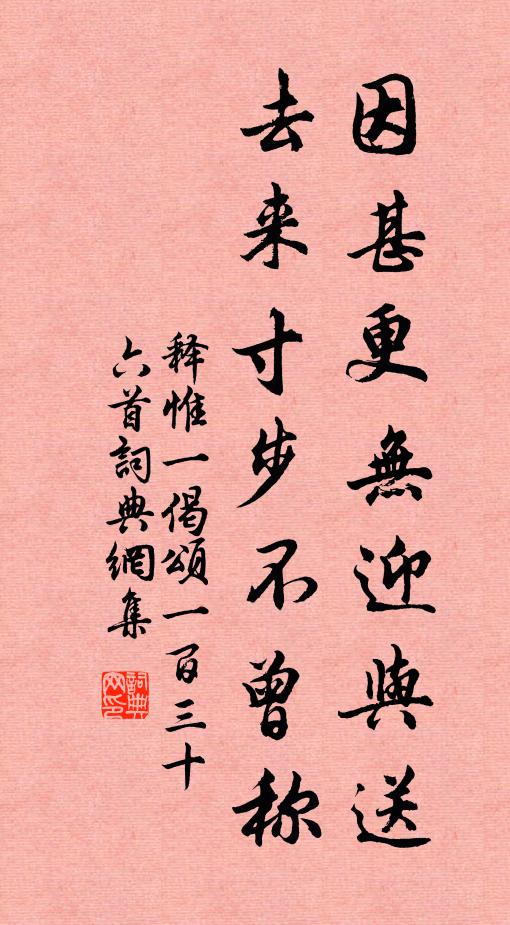 因甚更無迎與送
去来寸步不曾称
释惟一偈頌一百三十
六首詞典網集
詞典
网印